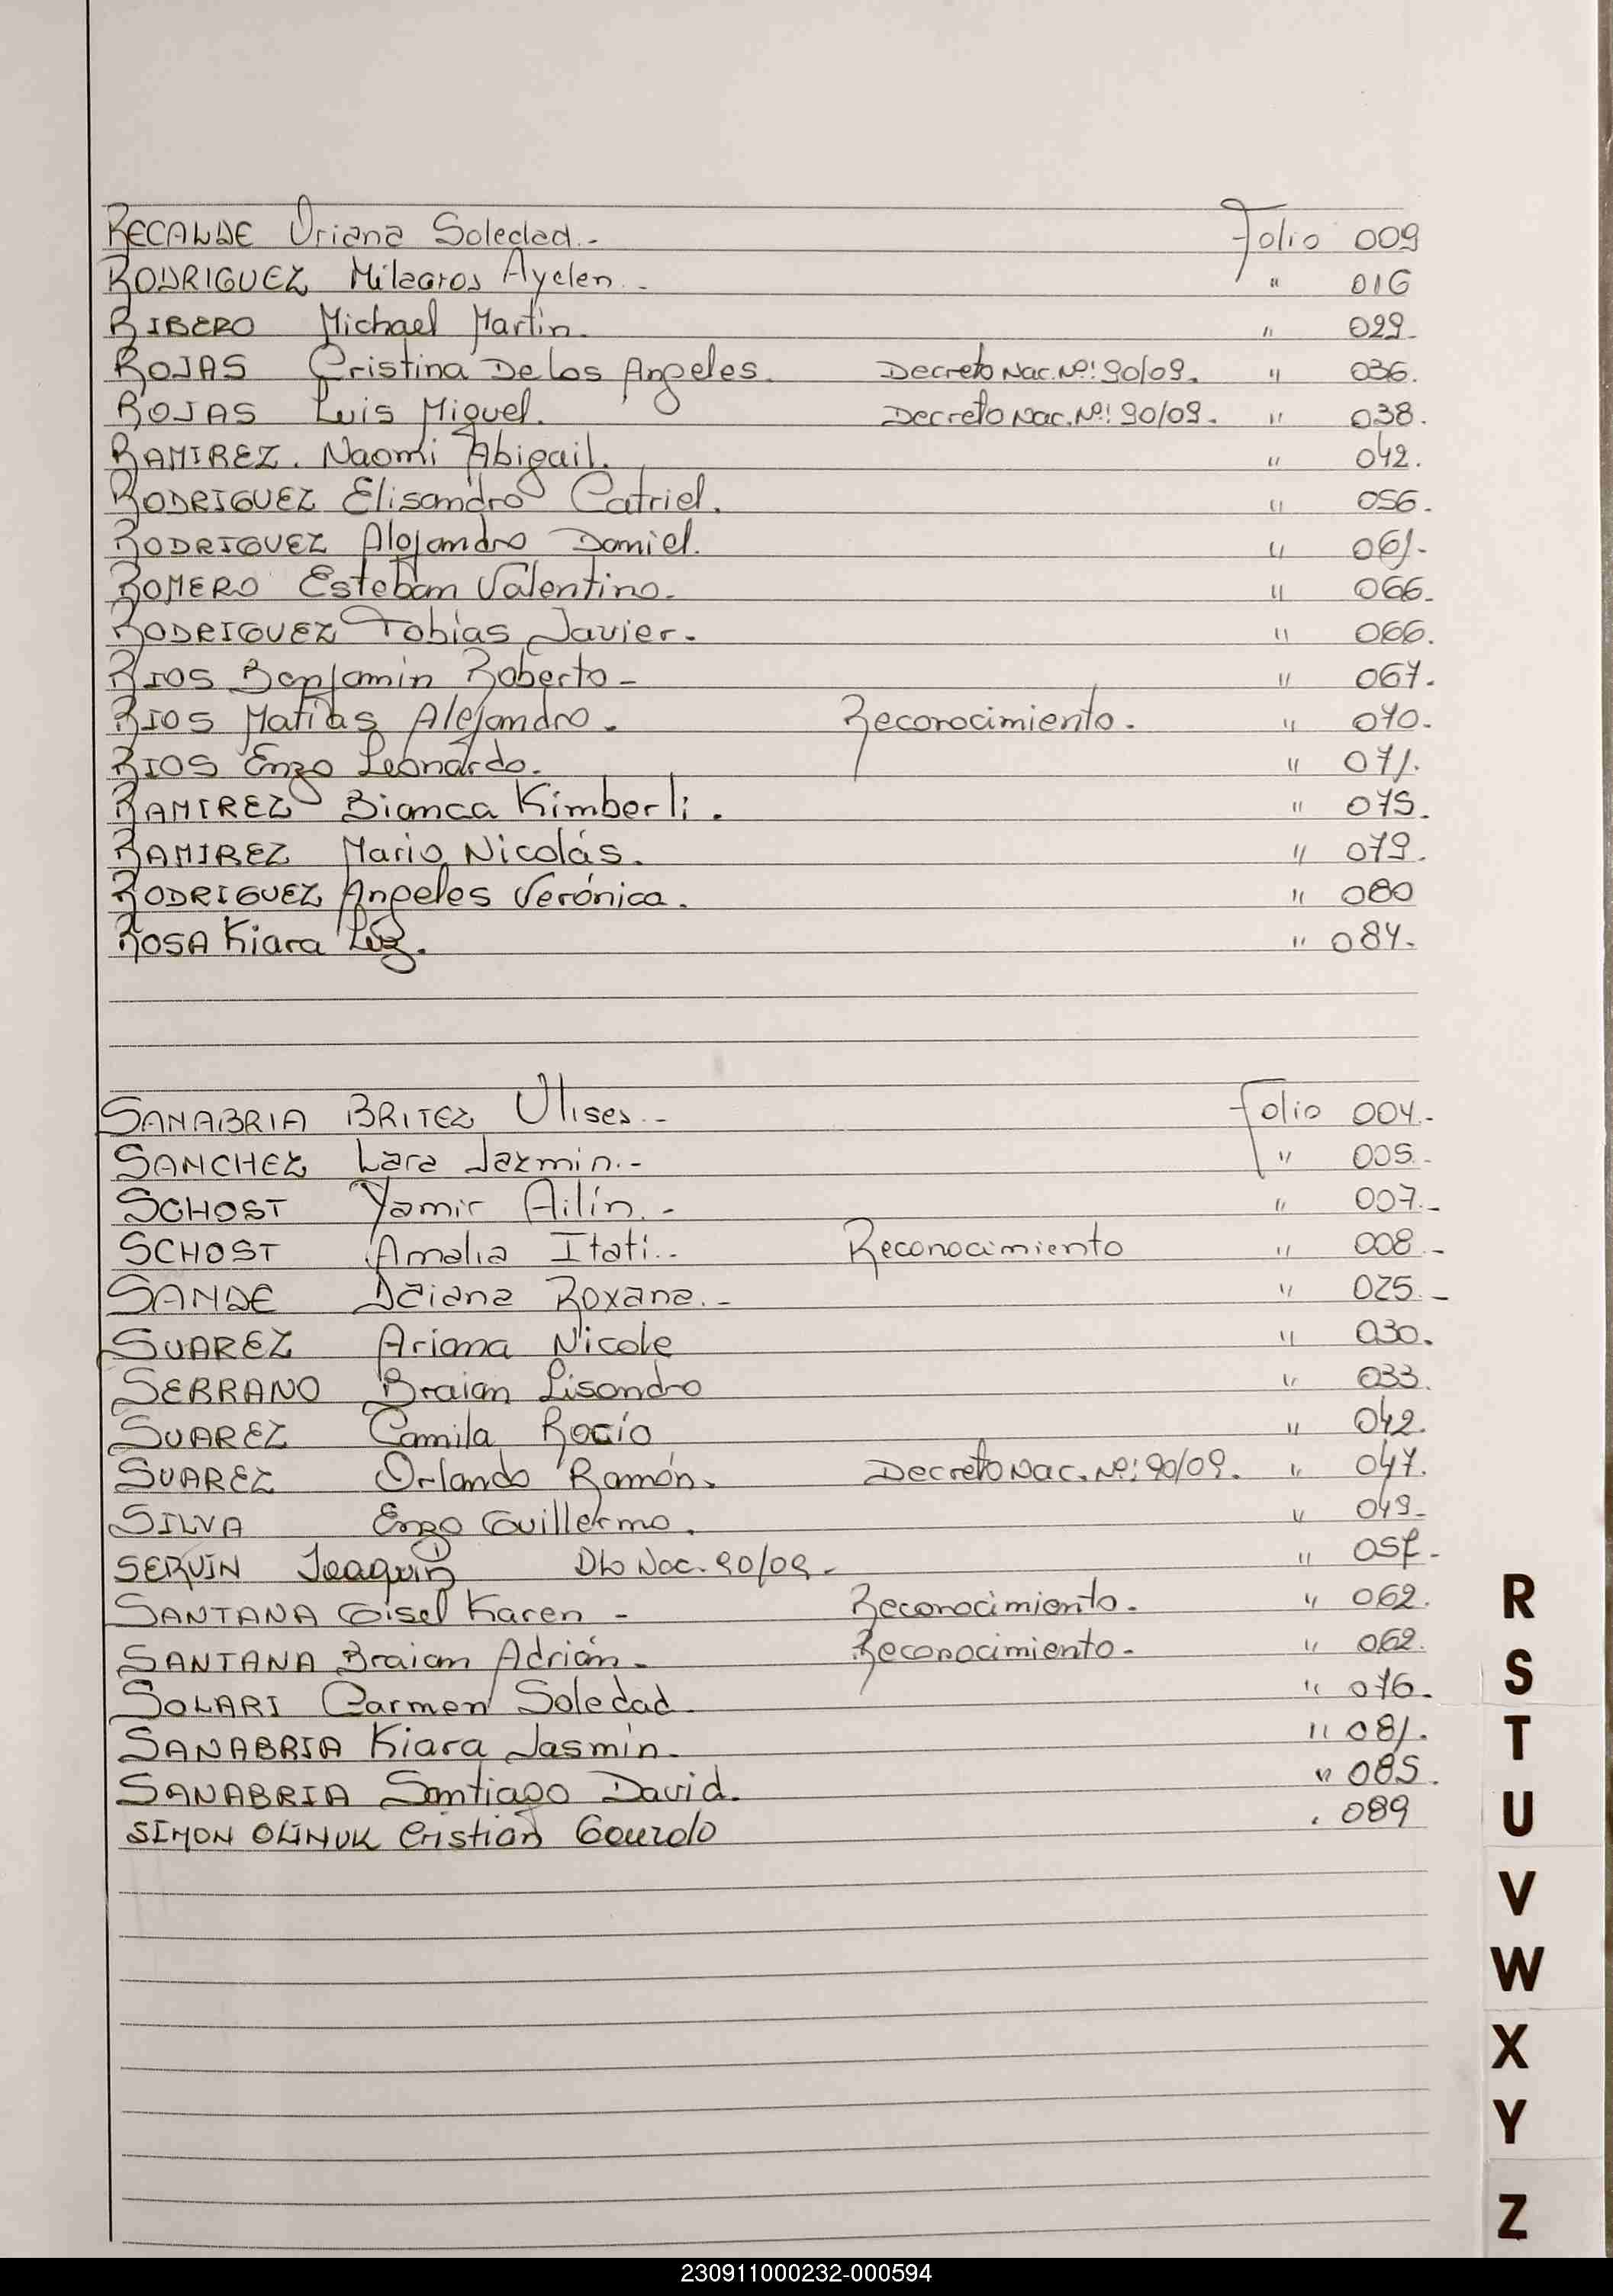 RECALDE Oriana Soledad.- Folio 009
RODRIGUEZ Milagros Ayelen.- " 016
RIBERO Michael Martin. " 029.
ROJAS Cristina De Los Angeles. Decreto Nac. Nº: 90/09. " 036.
ROJAS Luis Miguel. Decreto Nac. Nº: 90/09. " 038.
RAMIREZ. Naomi Abigail. " 042.
RODRIGUEZ Elisandro Catriel. " 056.
RODRIGUEZ Alejandro Daniel. " 061.
ROMERO Esteban Valentino. " 066.
RODRIGUEZ Tobías Javier. " 066.
RIOS Benjamin Roberto - " 067.
RIOS Matías Alejandro. Reconocimiento. " 070.
RIOS Enzo Leonardo. " 071.
RAMIREZ Bianca Kimberli. " 075.
RAMIREZ Mario Nicolás. " 079.
RODRIGUEZ Angeles Verónica. " 080
ROSA Kiara Luz. " 084.
SANABRIA BRITEZ Ulises.- Folio 004.-
SANCHEZ Lara Jazmin.- " 005.-
SCHOST Yamir Ailín.- " 007.-
SCHOST Amalia Itati.- Reconocimiento " 008.-
SANDE Daiana Roxana.- " 025.-
SUAREZ Ariana Nicole " 030.
SERRANO Braian Lisandro " 033.
SUAREZ Camila Rocío " 042.
SUAREZ Orlando Ramón. Decreto Nac. Nº: 90/09. " 047.
SILVA Enzo Guillermo. " 049.
SERVIN Joaquin Dto Nac. 90/09. "
SANTANA Gisel Karen - Reconocimiento. " 062.
SANTANA Braian Adrián. Reconocimiento. " 062.
SOLARI Carmen Soledad. " 076.
SANABRIA Kiara Jasmín. " 081.
SANABRIA Santiago David. " 085.
SIMON OLINUK Cristian . 089
R
S
T
U
V
W
X
Y
Z
230911000232-000594